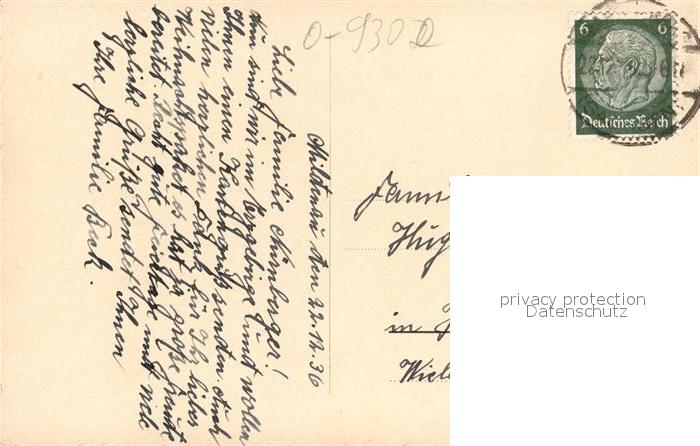 O-930D
6 6
Deutsches Reich
Mildenau den 22.12.36
Liebe Familie Nürnberger!
Nun sind wir im Erzgebirge und wollen
Ihnen einen Kartengruß senden. Auch
Vielen herzlichen Dank für Ihr liebes
Weihnachtspaket es hat ja große Freude
bereitet. Recht gute Feiertage und viele
herzliche Grüße sendet Ihnen
Ihre Familie Beck.
Fam
Hug
in
Wie
privacy protection
Datenschutz